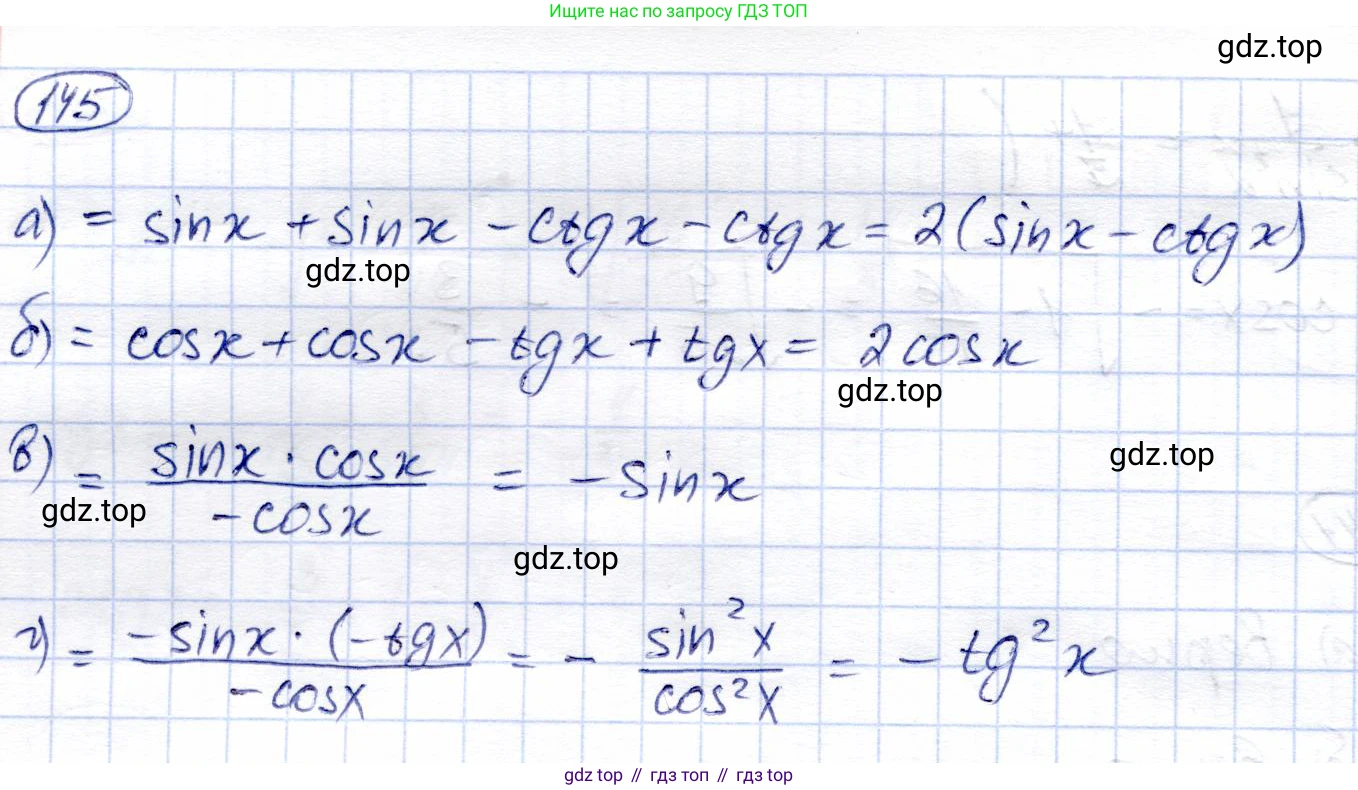 Ищите нас по запросу ГДЗ ТОП
gdz.top
145
а) = sinx + sinx - ctgx - ctgx = 2(sinx - ctgx)
gdz.top
б) = cosx + cosx - tgx + tgx = 2cosx
gdz.top
в) = \frac{sinx · cosx}{-cosx} = -sinx
gdz.top
gdz.top
gdz.top
г) = \frac{-sinx · (-tgx)}{-cosx} = - \frac{sin²x}{cos²x} = - tg²x
gdz top // гдз топ // гдз top